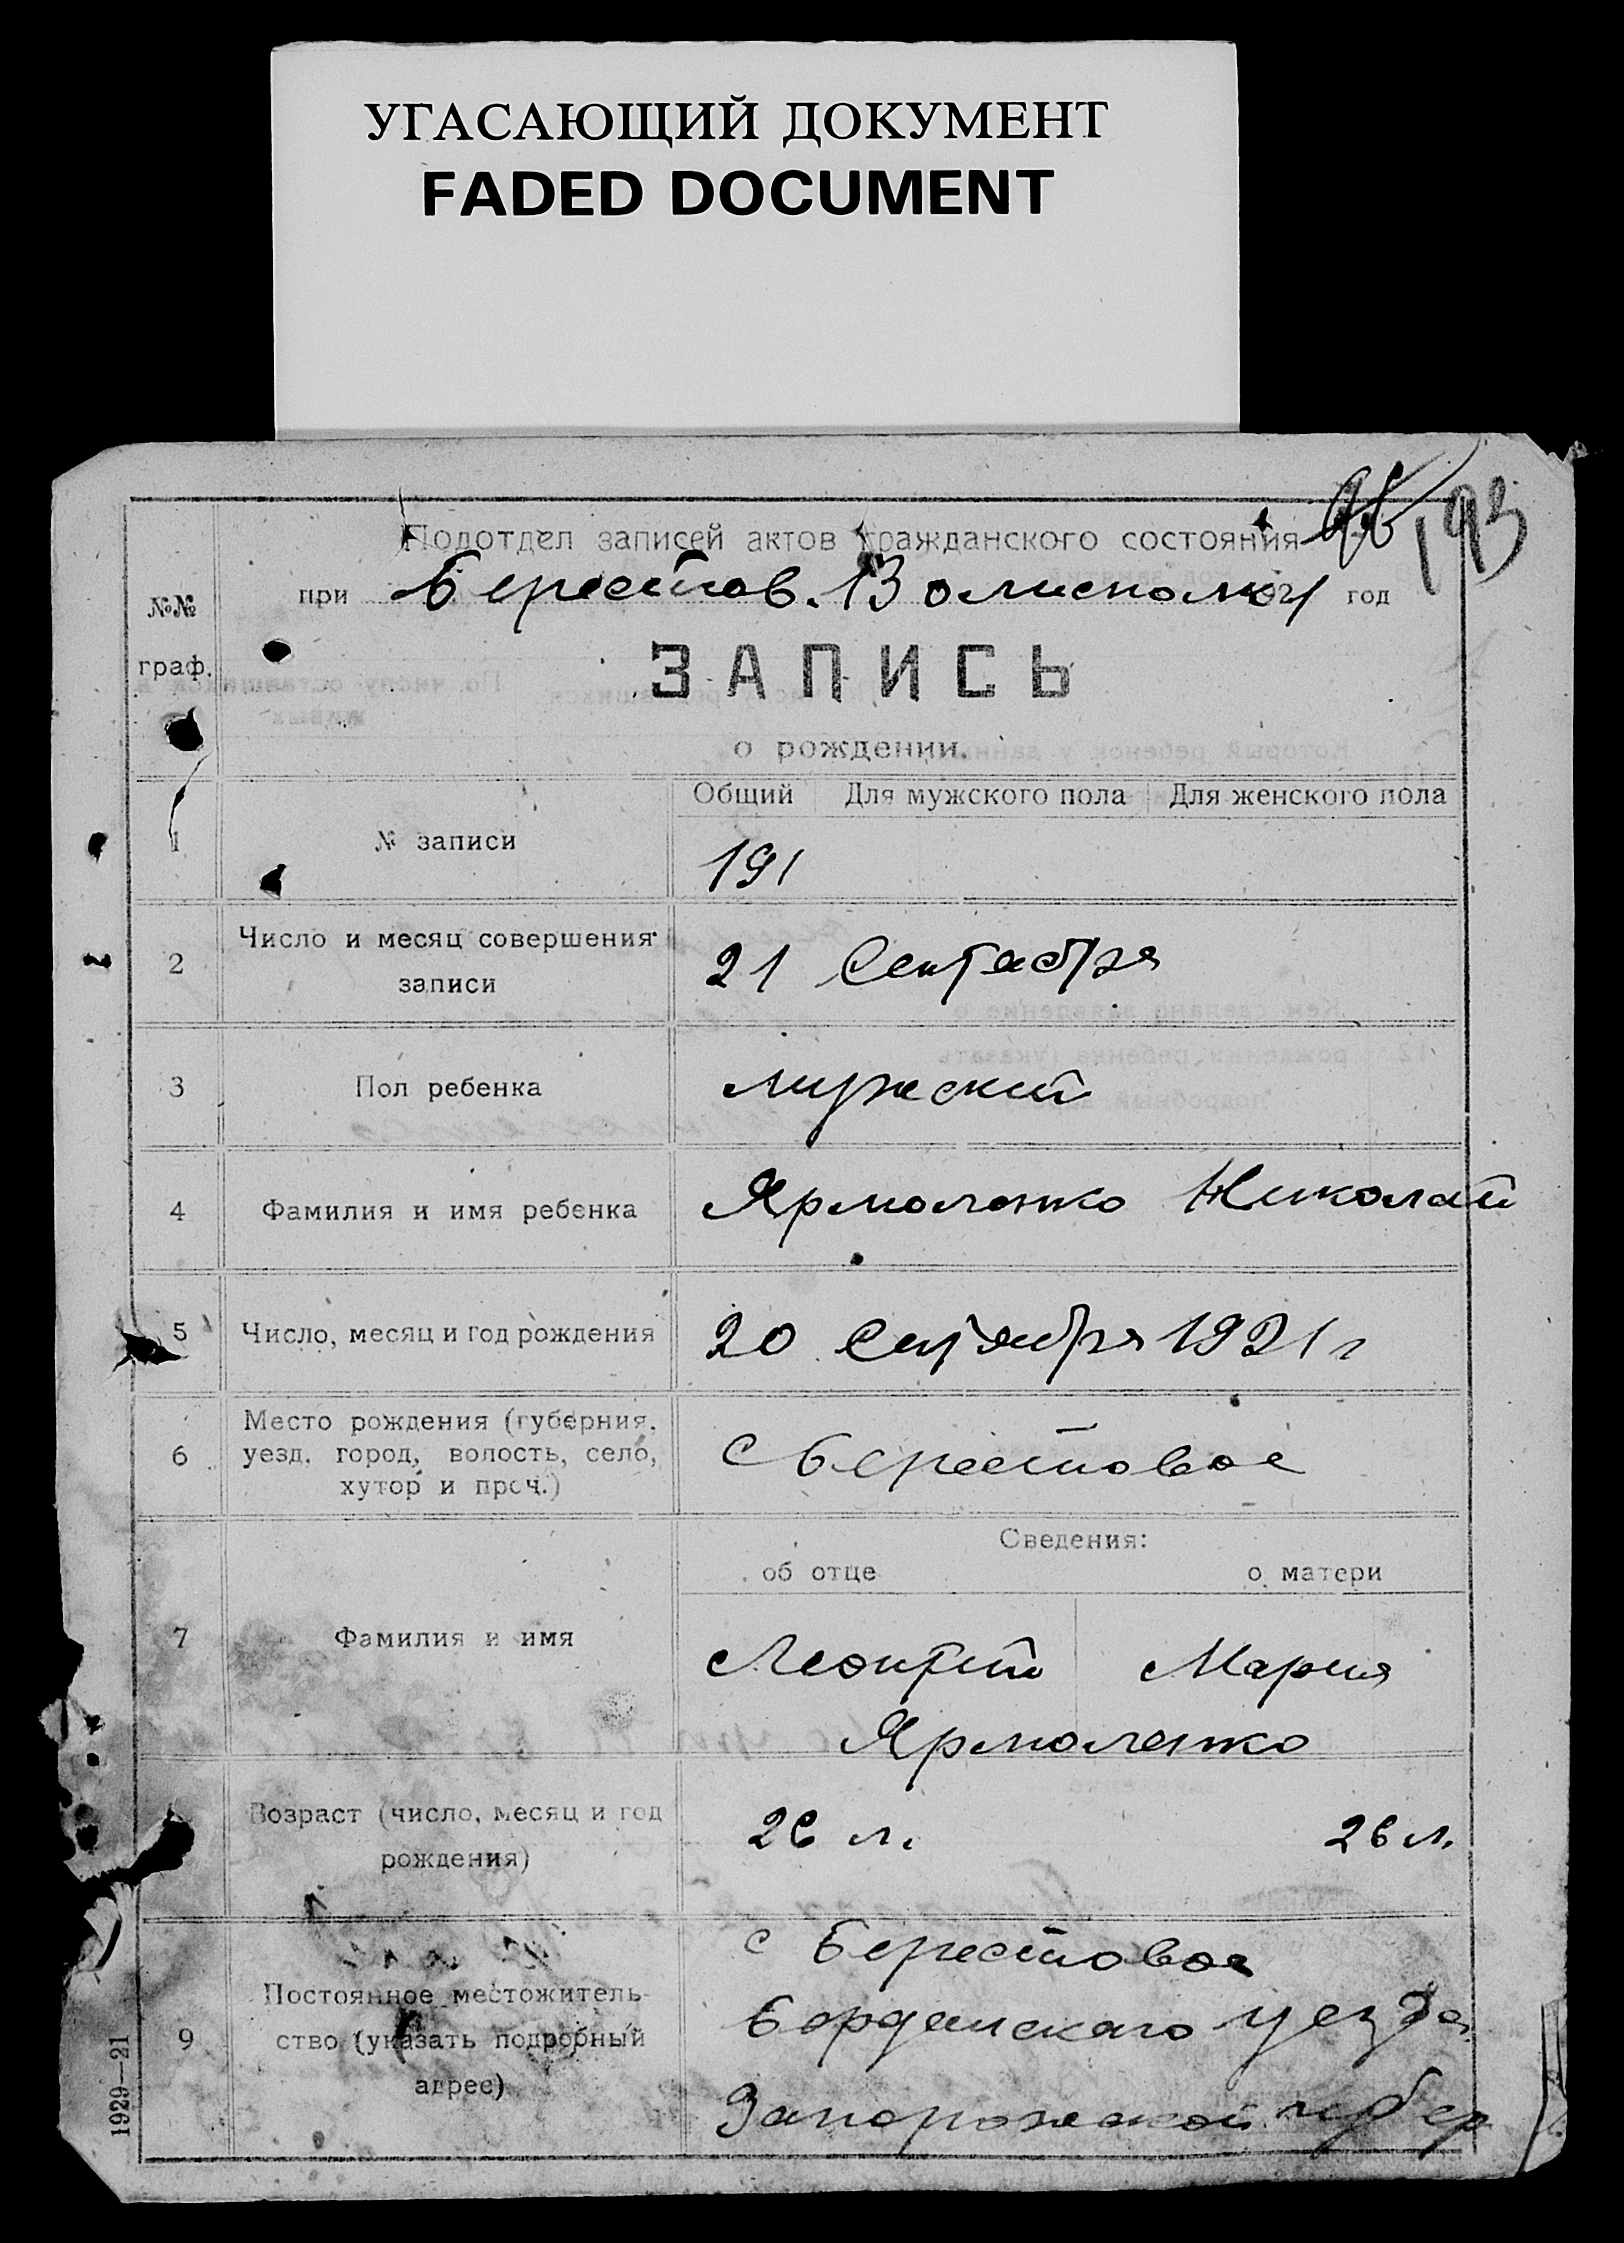 УГАСАЮЩИЙ ДОКУМЕНТ
FADED DOCUMENT
193
Подотдел записей актов гражданского состояния
при Берестов. Волисполк 21 год
№№
граф.
ЗАПИСЬ
о рождении.
Общий Для мужского пола Для женского пола
1 № записи 191
2 Число и месяц совершения
записи
21 Сентября
3 Пол ребенка мужский
4 Фамилия и имя ребенка Ярмоленко Николай
5 Число, месяц и год рождения 20 Сентября 1921 г
6 Место рождения (губерния,
уезд, город, волость, село,
хутор и проч.)
с Берестовое
Сведения:
об отце о матери
7 Фамилия и имя Леонтий Мария
Ярмоленко
Возраст (число, месяц и год
рождения)
26 л. 26 л.
9 Постоянное местожитель-
ство (указать подробный
адрес)
с Берестовое
Бердянскаго уезда
Запорожской губер
1929—21